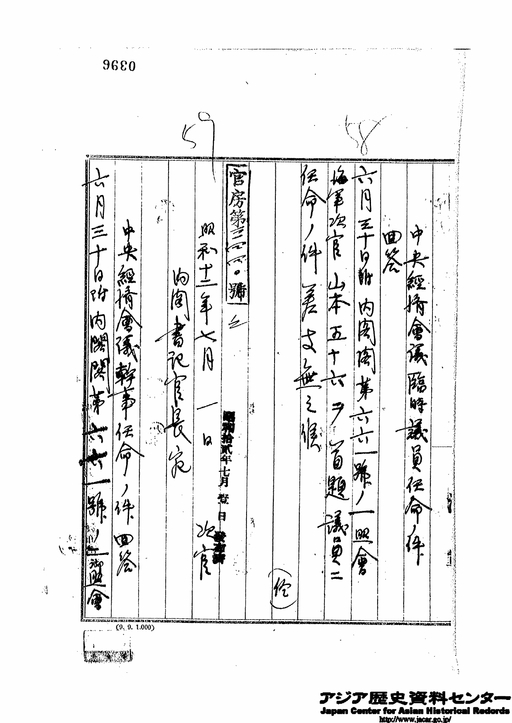 0396
58
59
中央經濟會議臨時議員任命ノ件
回答
六月三十日附内閣閣第六六一號ノ一照會
海軍次官山本五十六ヲ首題議員ニ
任命ノ件差支無之候
(終)
官房第三三四〇號ノ二
昭和十二年七月一日
昭和拾貳年七月壹日
次官
内閣書記官長宛
中央經濟會議幹事任命ノ件回答
六月三十日附内閣閣第六六一號ノ二御照會
(9. 9. 1.000)
アジア歴史資料センター
Japan Center for Asian Historical Records
http://www.jacar.go.jp/